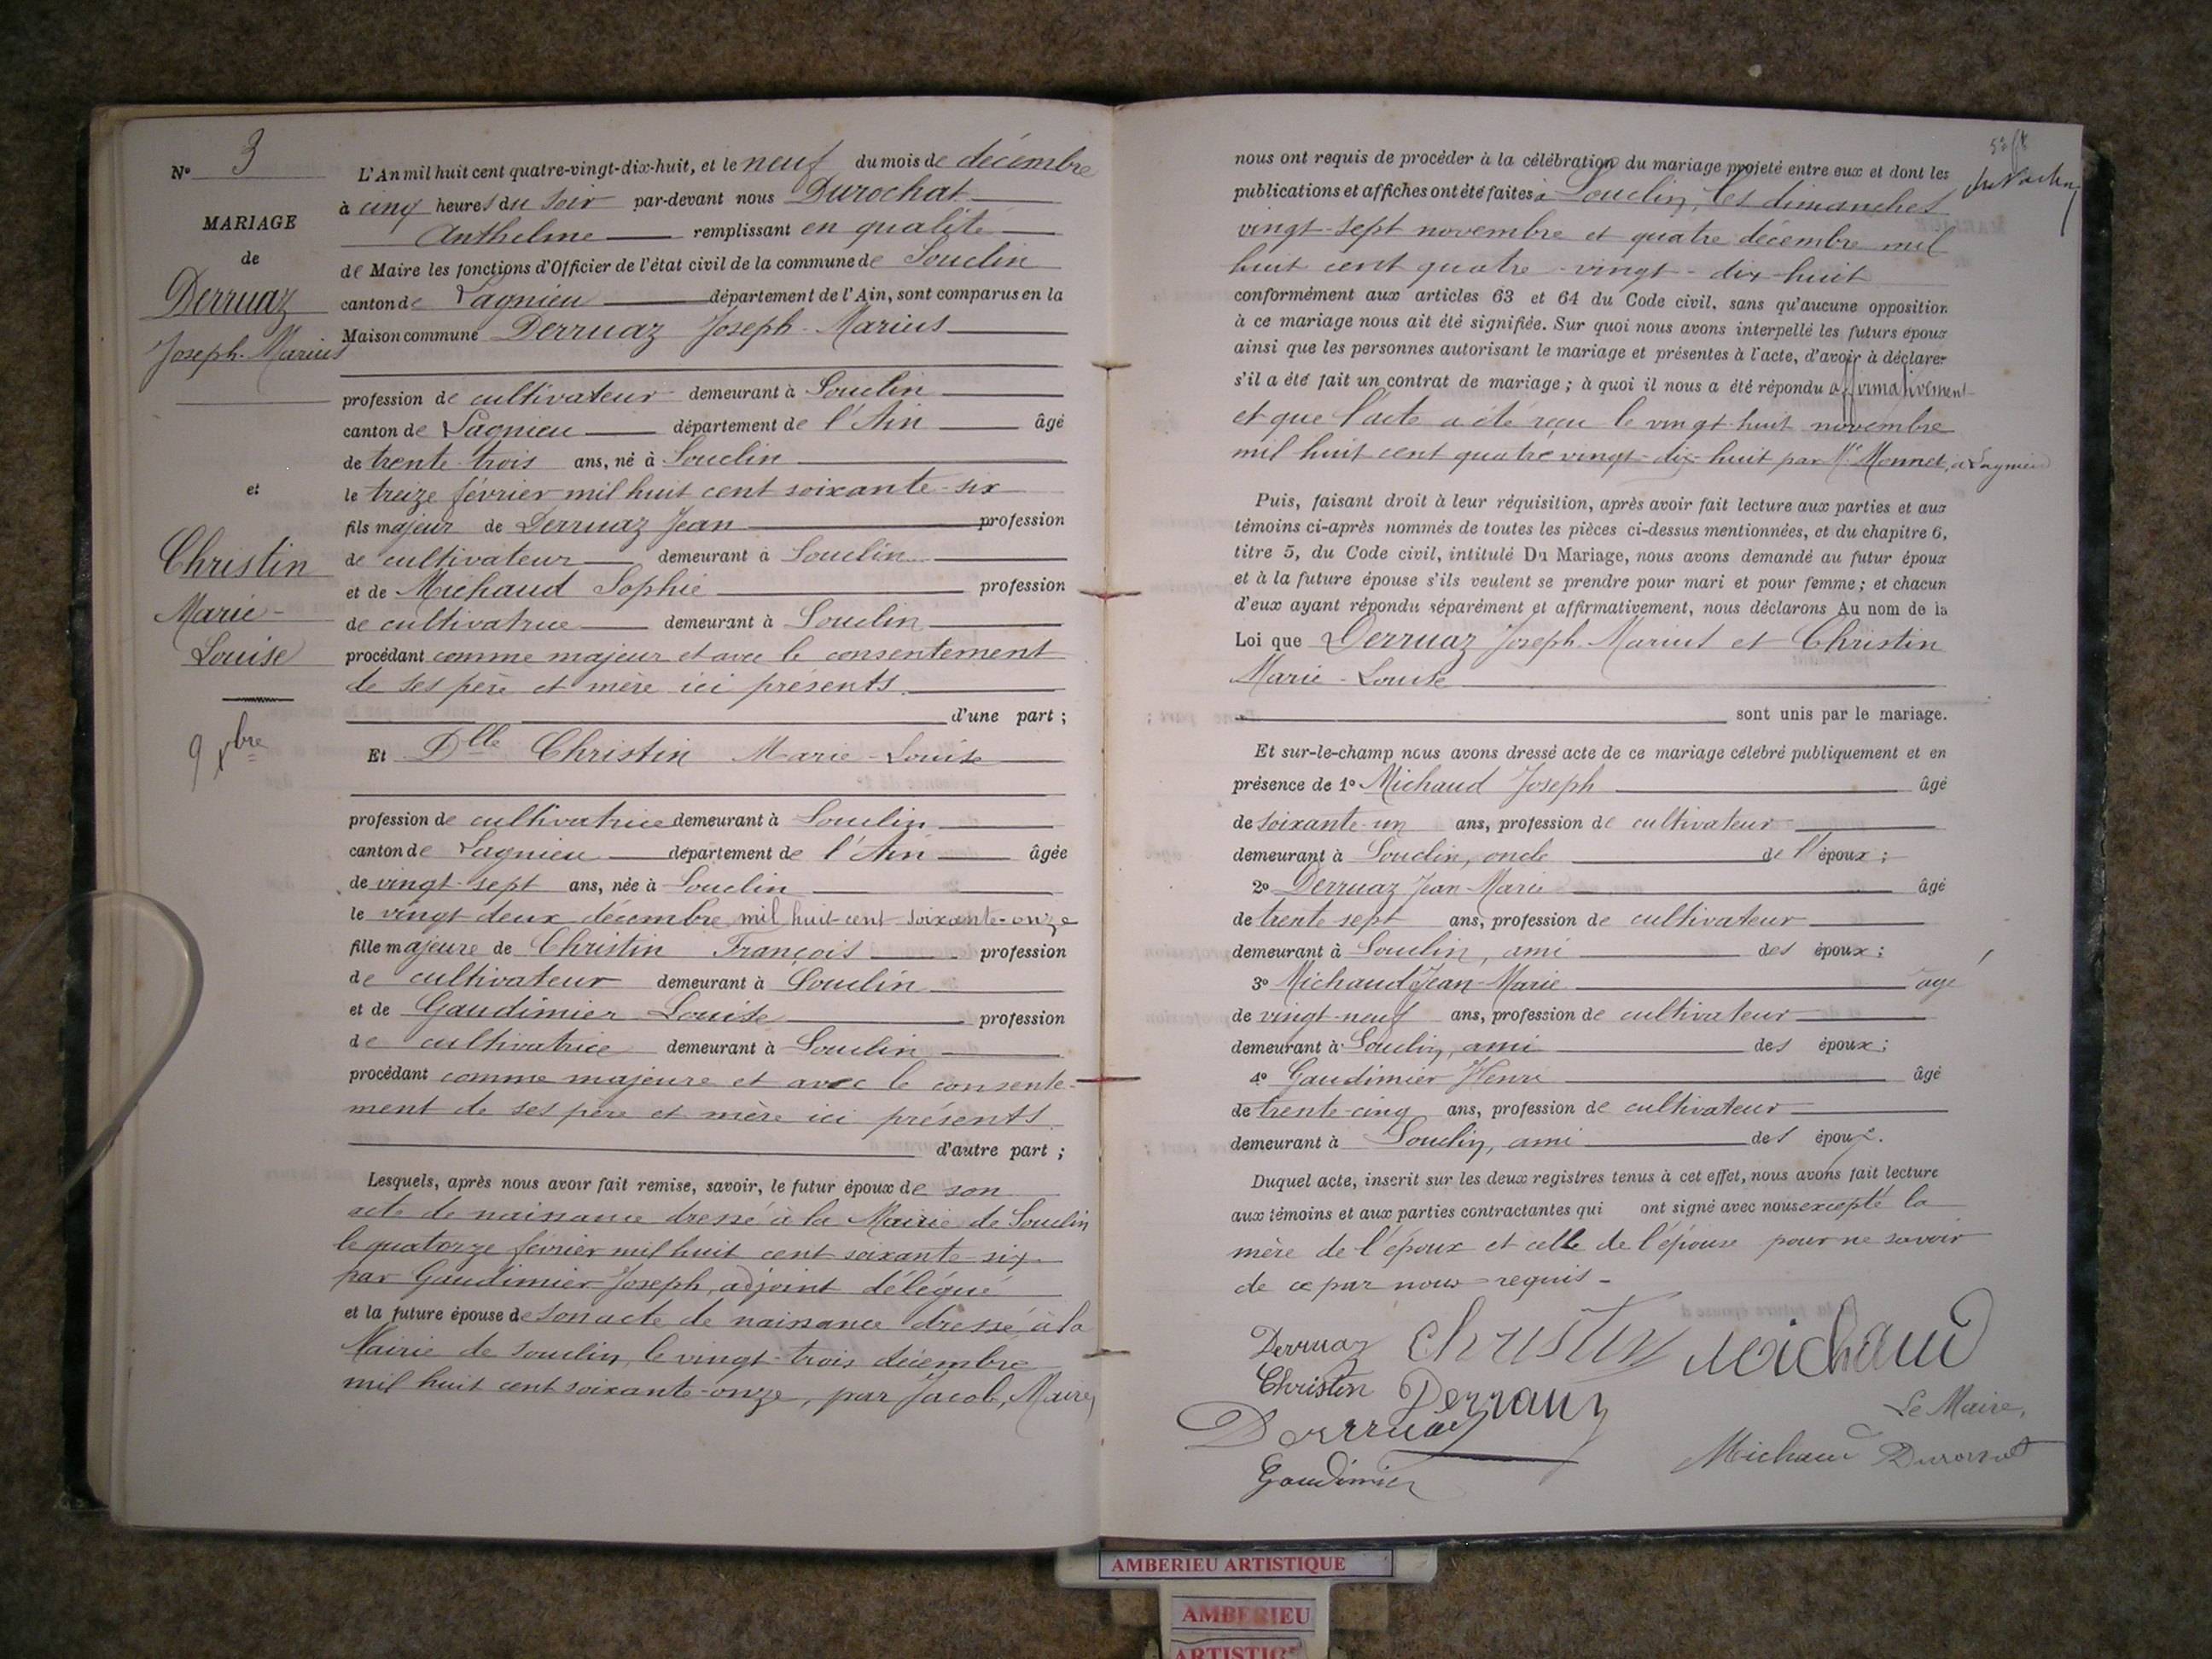 N° 3
MARIAGE
de
Derruaz
Joseph-Marius
et
Christin
Marie-
Louise
9 Xbre
L'An mil huit cent quatre-vingt-dix-huit, et le neuf du mois de décembre
à cinq heures du soir par-devant nous Durochat
Anthelme remplissant en qualité
de Maire les fonctions d'Officier de l'état civil de la commune de Souclin
canton de Lagnieu département de l'Ain, sont comparus en la
Maison commune Derruaz Joseph-Marius
profession de cultivateur demeurant à Souclin
canton de Lagnieu département de l'Ain âgé
de trente-trois ans, né à Souclin
le treize février mil huit cent soixante-six
fils majeur de Derruaz Jean profession
de cultivateur demeurant à Souclin
et de Michaud Sophie profession
de cultivatrice demeurant à Souclin
procédant comme majeur et avec le consentement
de ses père et mère ici présents.
d'une part ;
Et Dlle Christin Marie-Louise
profession de cultivatrice demeurant à Souclin
canton de Lagnieu département de l'Ain âgée
de vingt-sept ans, née à Souclin
le vingt deux décembre mil huit-cent soixante-onze
fille majeure de Christin François profession
de cultivateur demeurant à Souclin
et de Gaudimier Louise profession
de cultivatrice demeurant à Souclin
procédant comme majeure et avec le consente-
ment de ses père et mère ici présents.
d'autre part ;
Lesquels, après nous avoir fait remise, savoir, le futur époux de son
acte de naissance dressé à la Mairie de Souclin
le quatorze février mil huit cent soixante-six
par Gaudimier Joseph, adjoint délégué
et la future épouse de son acte de naissance dressé à la
Mairie de Souclin, le vingt-trois décembre
mil huit cent soixante-onze, par Jacob, Maire,
nous ont requis de procéder à la célébration du mariage projeté entre eux et dont les
publications et affiches ont été faites à Souclin, les dimanches
vingt-sept novembre et quatre décembre mil
huit cent quatre-vingt-dix-huit
conformément aux articles 63 et 64 du Code civil, sans qu'aucune opposition
à ce mariage nous ait été signifiée. Sur quoi nous avons interpellé les futurs époux
ainsi que les personnes autorisant le mariage et présentes à l'acte, d'avoir à déclarer
s'il a été fait un contrat de mariage ; à quoi il nous a été répondu affirmativement
et que l'acte a été reçu le vingt-huit novembre
mil huit cent quatre vingt-dix-huit par Me Monnet, à Lagnieu
Puis, faisant droit à leur réquisition, après avoir fait lecture aux parties et aux
témoins ci-après nommés de toutes les pièces ci-dessus mentionnées, et du chapitre 6,
titre 5, du Code civil, intitulé Du Mariage, nous avons demandé au futur époux
et à la future épouse s'ils veulent se prendre pour mari et pour femme ; et chacun
d'eux ayant répondu séparément et affirmativement, nous déclarons Au nom de la
Loi que Derruaz Joseph-Marius et Christin
Marie-Louise
sont unis par le mariage.
Et sur-le-champ nous avons dressé acte de ce mariage célébré publiquement et en
présence de 1° Michaud Joseph âgé
de soixante-un ans, profession de cultivateur
demeurant à Souclin, oncle de l'époux ;
2° Derruaz Jean-Marie âgé
de trente sept ans, profession de cultivateur
demeurant à Souclin, ami des époux ;
3° Michaud Jean-Marie âgé
de vingt-neuf ans, profession de cultivateur
demeurant à Souclin, ami des époux ;
4° Gaudimier Henri âgé
de trente-cinq ans, profession de cultivateur
demeurant à Souclin, ami des époux.
Duquel acte, inscrit sur les deux registres tenus à cet effet, nous avons fait lecture
aux témoins et aux parties contractantes qui ont signé avec nous excepté la
mère de l'époux et celle de l'épouse pour ne savoir
de ce par nous requis-
Derruaz Christin Michaud
Christin Derruaz
Derruaz
Gaudimier
Le Maire,
Michaud Durochat
AMBERIEU ARTISTIQUE
AMBERIEU
ARTISTIQUE